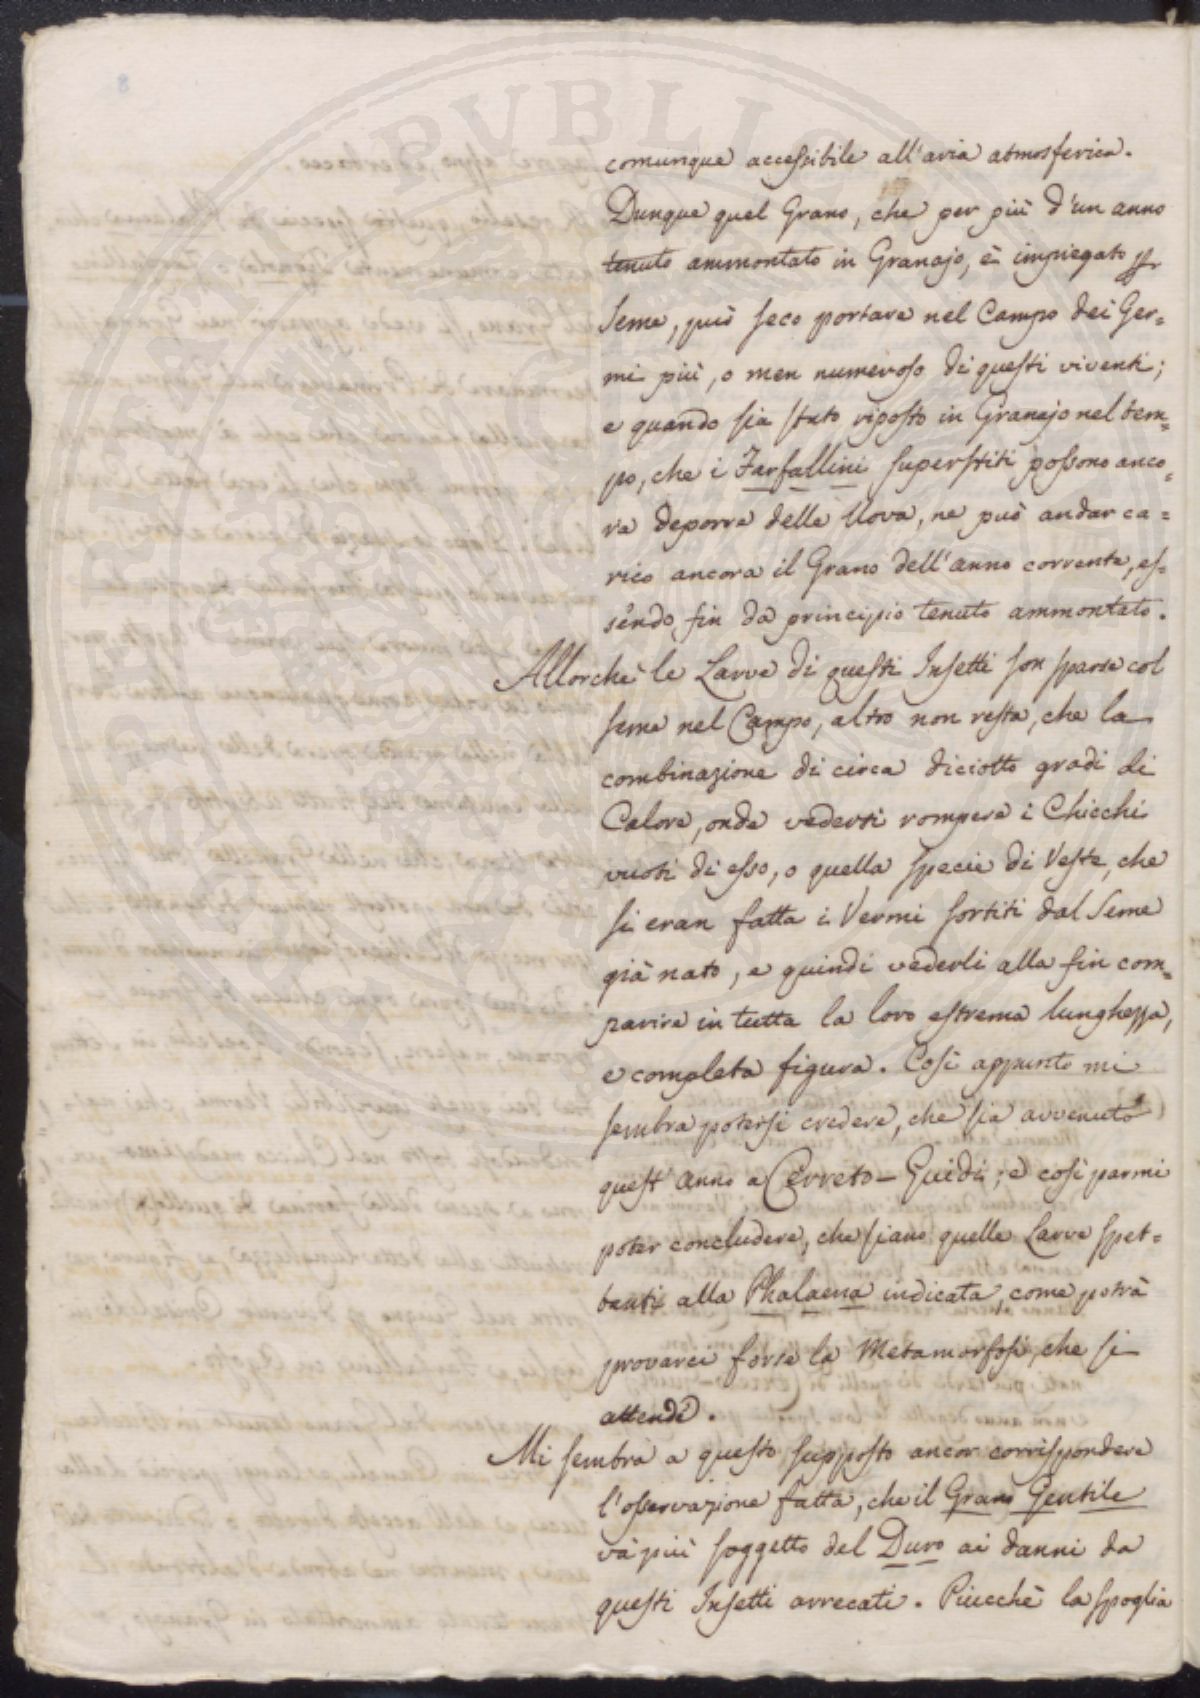 comunque accessibile all'aria atmosferica.
Dunque quel Grano, che per più d'un anno
tenuto ammontato in Granajo, è impiegato p
Seme, può seco portare nel Campo dei Ger=
mi più, o men numeroso di questi viventi;
e quando sia stato riposto in Granajo nel tem=
po, che i Farfallini superstiti possono anco=
ra deporre delle Uova, ne può andar ca=
rico ancora il Grano dell'anno corrente, es=
sendo fin da principio tenuto ammontato.
Allorchè le Larve di questi Insetti son sparse col
seme nel Campo, altro non resta, che la
combinazione di circa diciotto gradi di
Calore, onde vedersi rompere i Chicchi
vuoti di esso, o quella specie di Veste, che
si eran fatta i Vermi sortiti dal Seme
già nato, e quindi vederli alla fin com=
parire in tutta la loro estrema lunghezza,
e completa figura. Così appunto mi
sembra potersi credere, che sia avvenuto
quest'anno a Cerreto-Guidi; e così parmi
poter concludere, che siano quelle Larve spet=
tanti alla Phalaena indicata, come potrà
provarci forse la Metamorfosi, che si
attende.
Mi sembra a questo supposto ancor corrispondere
l'osservazione fatta, che il Grano Gentile
và più soggetto del Duro ai danni da
questi Insetti arrecati. Piucchè la spoglia